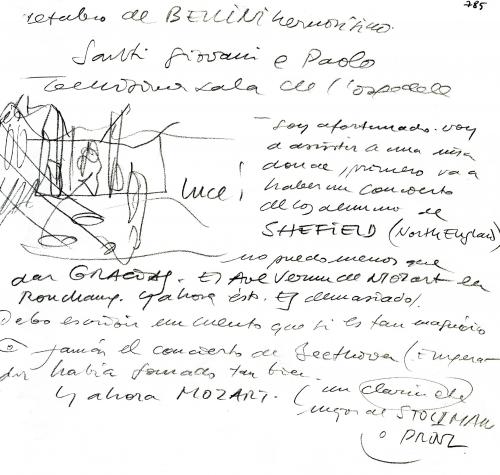 785
retablo de BELLINI hermosísimo.
Santi Giovani e Paolo
sala de l'ospedale
- Soy afortunado. voy
a asistir a una misa
donde, primero va a
haber un concierto
de los alumnos de
SHEFIELD (North England)
Luce!
no puedo menos que
dar GRACIAS. El Ave Verum de MOZART en
Ronchamp. Y ahora ésto. Es demasiado!
Debo escribir un cuento que si es tan magnífico
jamás el concierto de Beethoven (Empera-
dor había sonado tan bien
Y ahora MOZART. (un clarinete
mejor de STOLZMAN
o PRINZ